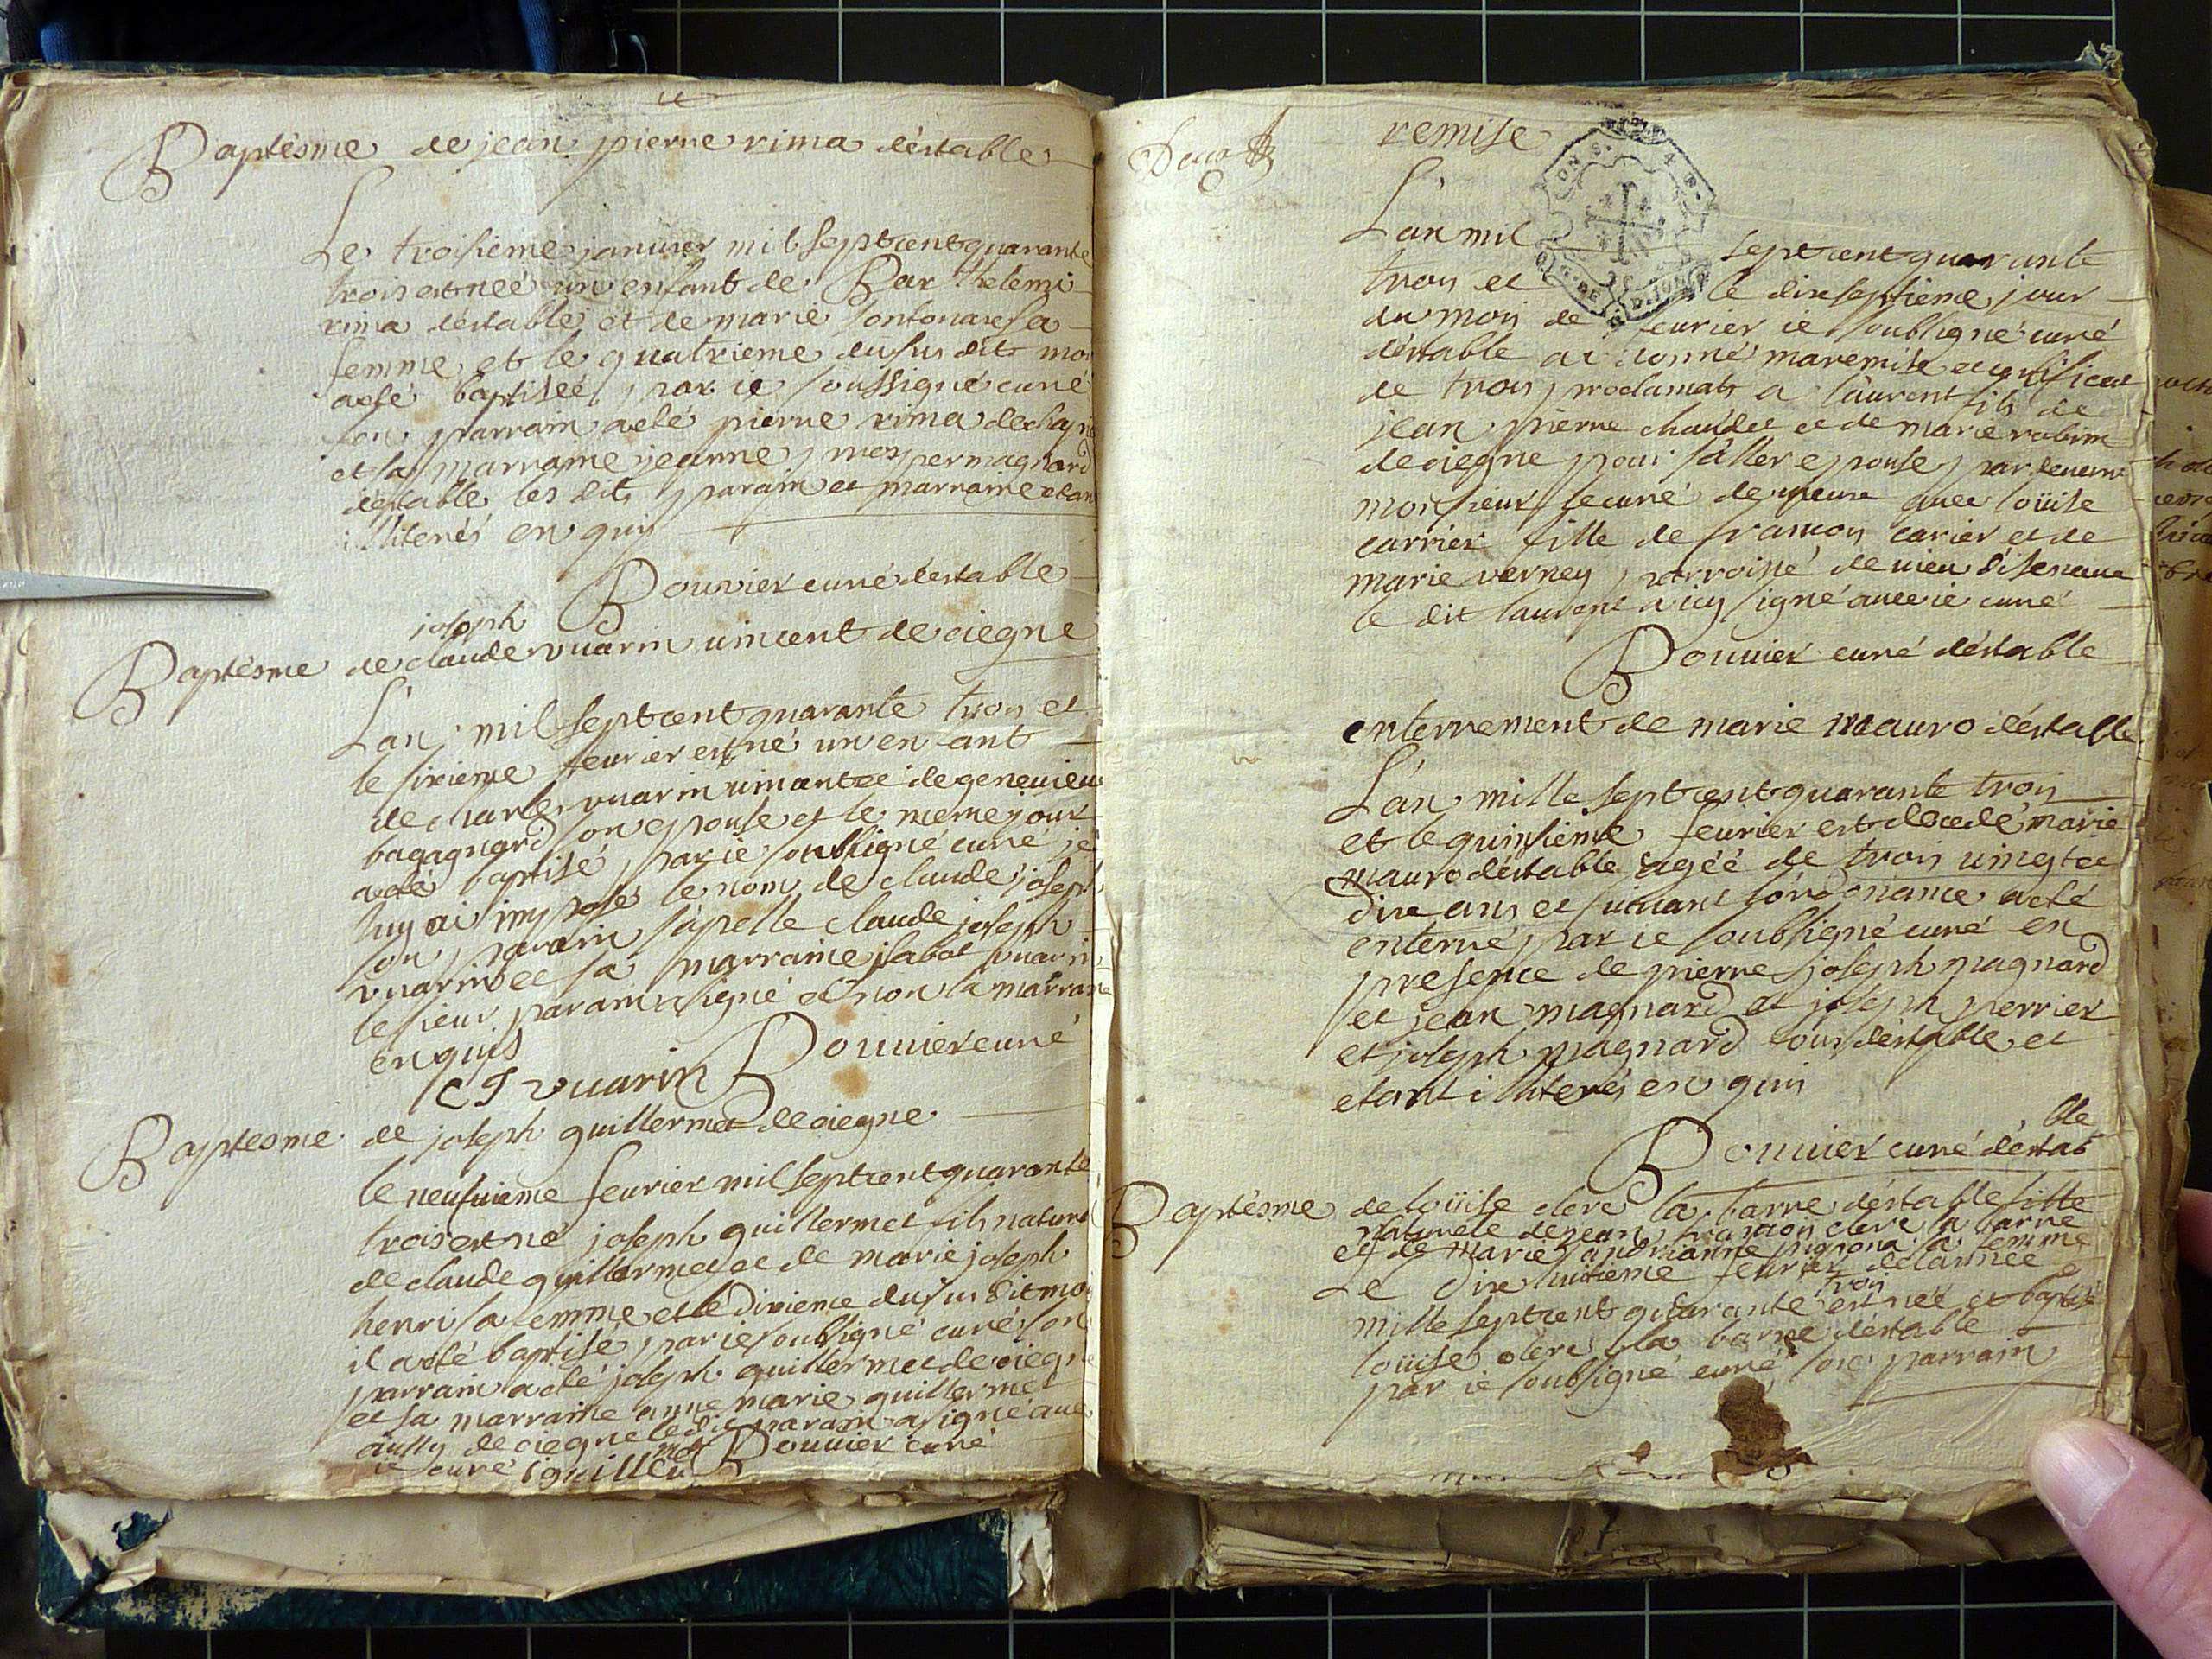 Baptésme de jean pierre rima déstable
Le troisieme janvier mil septcentquarante
trois est née un enfant de Barthelemi
rima déstable et de marie sontonax sa
femme et le quatrieme du sus dit moi
aesé baptiseé par ie soussigné curé
son parrain aeté pierre rima de
et sa marraine jeanne magnard
destable les dits parain et marraine etan
illiterés enquis
Bouvier curé déstable
joseph
Baptésme de claude vuarin vincent de ciegne
L'an mil septcentquarante trois et
le sixieme feurier est né un enfant
de charle vuarin uincent et de geneuieue
bagagnard son epouse et le meme jour
aeté baptisé par ie soubsigné curé je
luy ai imposé le nom de claude joseph
son parain s'apelle claude joseph
vuarin et sa marraine jsabot vuarin
le sieur parain a signé et non la marraine
enquis
CJ vuarin Bouuier curé
Baptesme de joseph guillermet de ciegne
le neufuieme feurier mil septcentquarante
trois est né joseph guillermet fils naturel
de claude guillermet et de marie joseph
henri sa femme et le dixieme du sus dit moi
il aeté baptisé par ie soubsigné curé son
parrain a eté joseph guillermet de ciegne
et sa marraine anne marie guillermet
aussy de ciegne le dit parain a signé auec
ie curé iguillermet Bouuier curé
remise
L'an mil septcentquarante
trois et le dixseptieme jour
du mois de feurier ie soubsigné curé
déstable ai donné ma remise et certificat
de trois proclamats a laurent fils de
jean pierre chaudet et de marie robin
de ciegne pour s'aller epouse par deuant
monsieur le curé de auec loüise
carrier fille de francois carier et de
marie verney parroisse de uieu
le dit laurent a icy signé auec ie curé
Bouuier curé déstable
enterrement de marie mauro déstable
L'an mille septcentquarante trois
et le quinsieme feurier est decedé marie
mauro déstable agéé de trois uingt et
dix ans et suiuant l'ordonnance aeté
enterré par ie soubsigné curé en
presence de pierre joseph magnard
et jean magnard et joseph perrier
et joseph magnard tous déstable et
etant illiterés enquis
ble
Bouuier curé déstab
Baptésme de loüise clerc la barre déstable fille
naturele de jean francois clerc la barre
et de marie andrianne pignona sa femme
Le dixhuitieme feurier de l'année
trois
mille septcent quarante est neé et baptisé
loüise clerc la barre déstable
par ie soubsigné curé son parrain